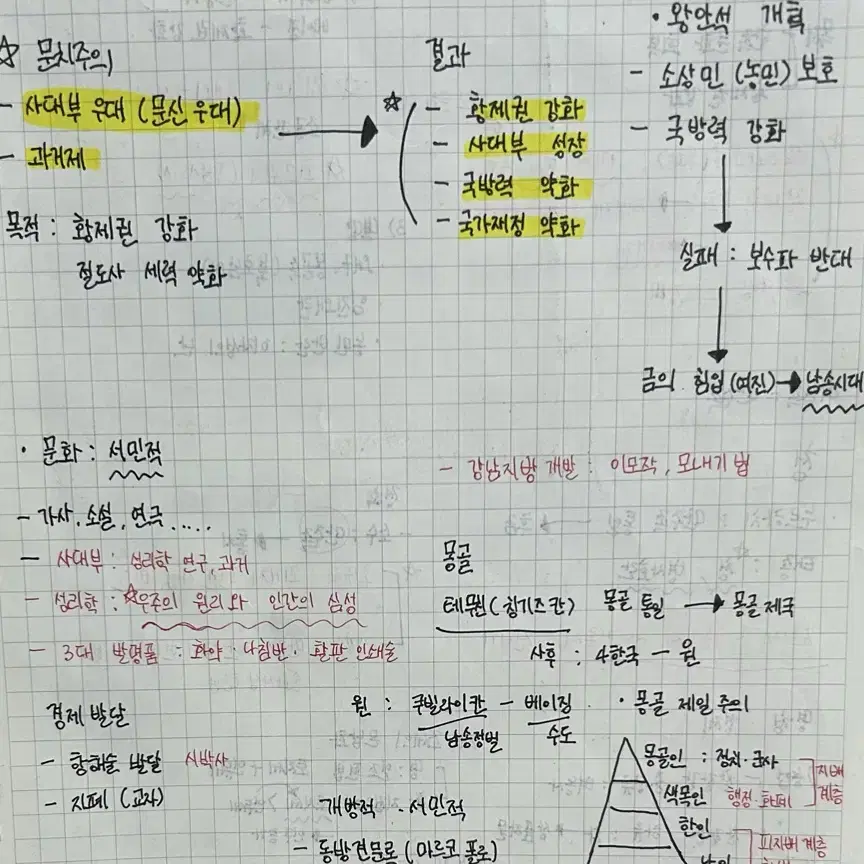 ☆ 문치주의
- 사대부 우대 (문신 우대)
- 과거제
목적 : 황제권 강화
절도사 세력 약화
결과
☆ - 황제권 강화
- 사대부 성장
- 국방력 약화
- 국가재정 약화
· 왕안석 개혁
- 소상민 (농민) 보호
- 국방력 강화
실패 : 보수파 반대
금의 침입 (여진) → 남송시대
· 문화 : 서민적
- 가사, 소설, 연극 .....
- 사대부 : 성리학 연구, 과거
- 성리학 : ☆우주의 원리와 인간의 심성
- 3대 발명품 : 화약 · 나침반 · 활판 인쇄술
경제 발달
- 항해술 발달 시박사
- 지폐 (교자)
- 강남지방 개발 : 이모작, 모내기법
몽골
테무친 (칭기즈칸) 몽골 통일 → 몽골 제국
사후 : 4한국 - 원
원 : 쿠빌라이칸 - 베이징
남송정벌 수도
개방적 · 서민적
- 동방견문록 (마르코 폴로)
· 몽골 제일 주의
몽골인 : 정치 · 군사
색목인 행정 · 화폐
지배 계층
한인
피지배 계층